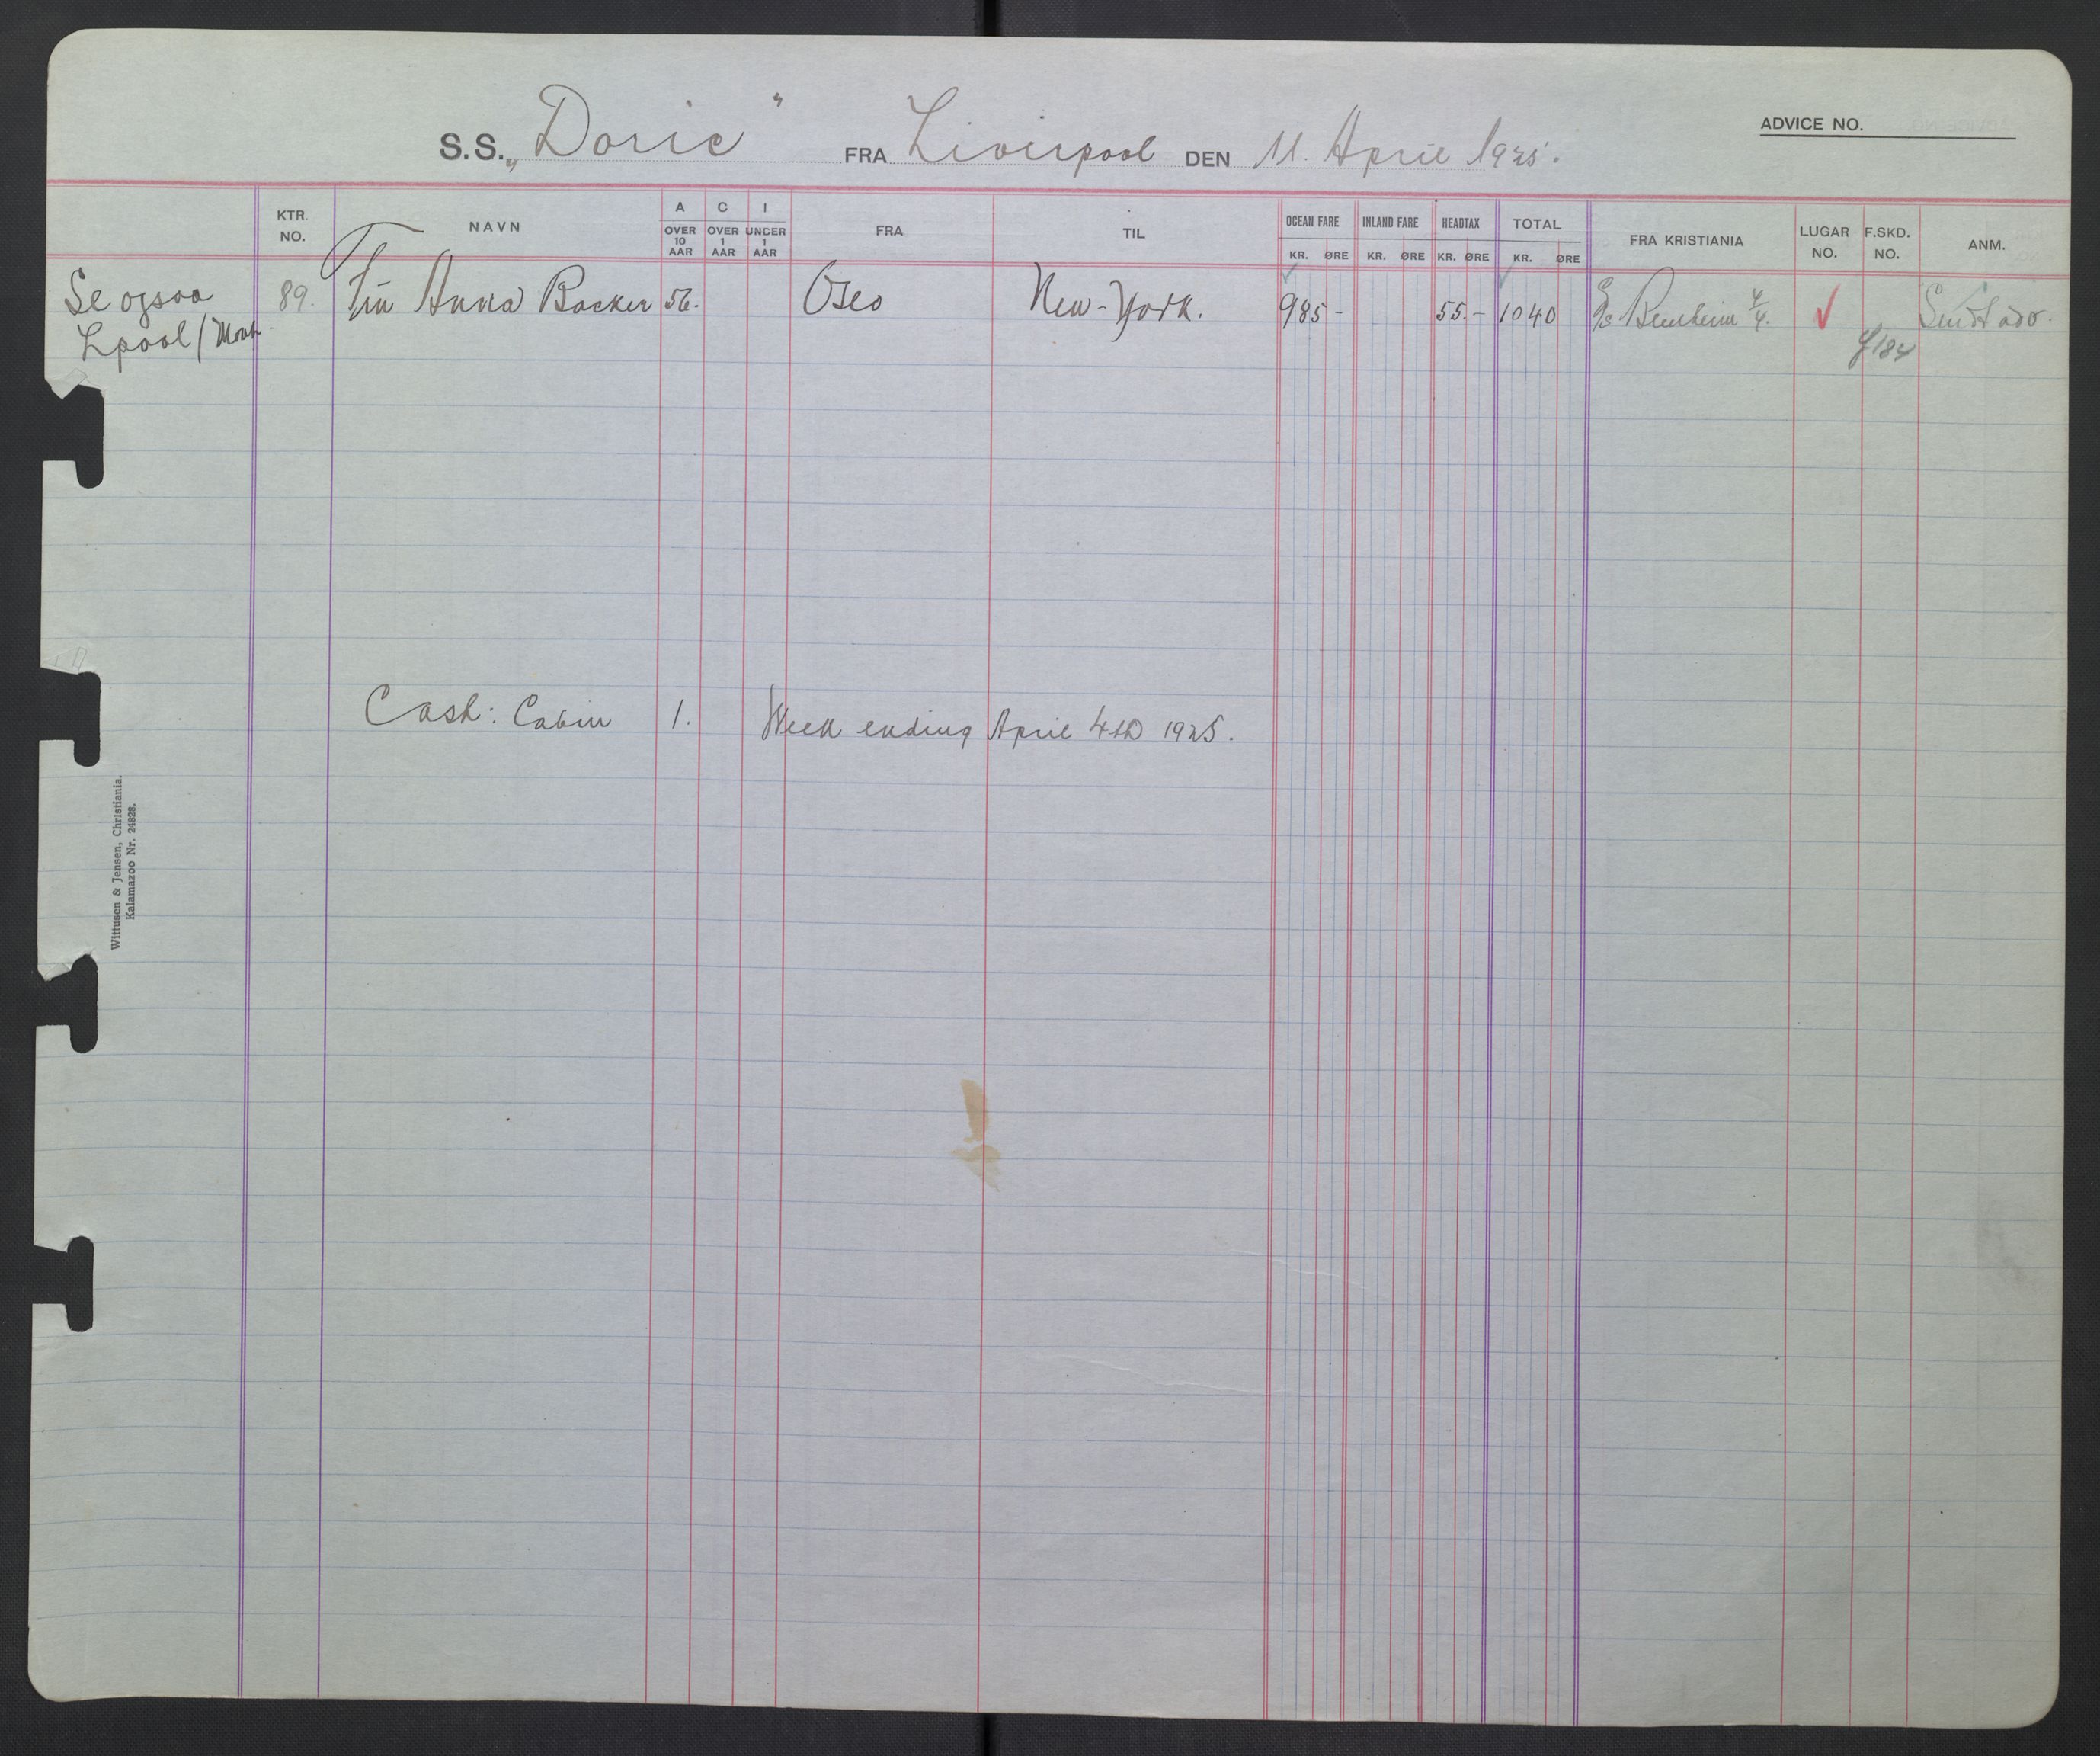 ADVICE NO.
S.S. „Doric" FRA Liverpool DEN 11. April 1925.
KTR. NO. NAVN A OVER 10 AAR C OVER 1 AAR I UNDER 1 AAR FRA TIL OCEAN FARE KR. ØRE INLAND FARE KR. ØRE HEADTAX KR. ØRE TOTAL KR. ØRE FRA KRISTIANIA LUGAR NO. F.SKD. NO. ANM.
Se ogsaa 89. Frü Anna Backer 56. Oslo New-York. 985 - 55.- 1040 4/4.
Lpool/Mont. 184
Cash: Cabin 1. Week ending April 4th 1925.
Wittusen & Jensen, Christiania.
Kalamazoo Nr. 24828.